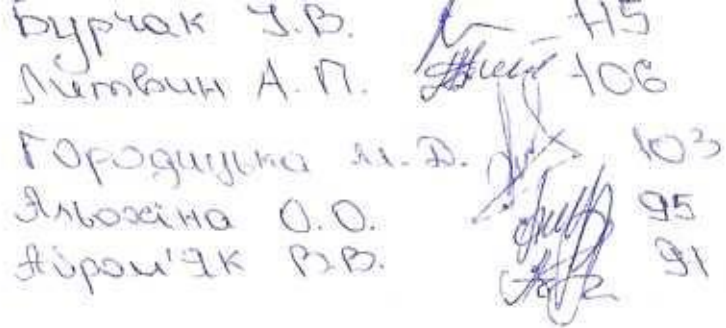 Бурчак І.В. 115
Литвин А.П. 106
Городицька М.Д. 103
Альохіна О.О. 95
В.В. 91